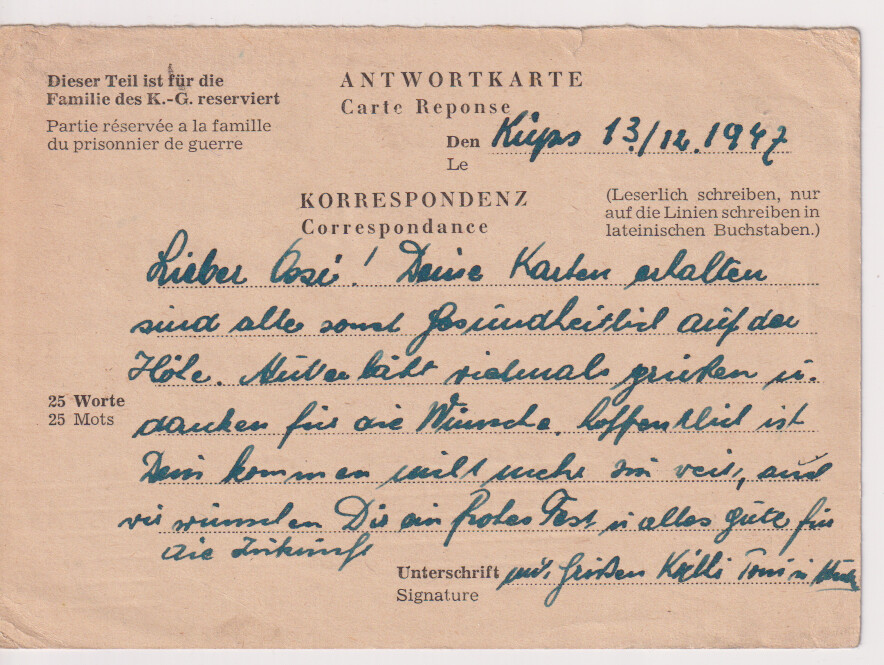 Dieser Teil ist für die
Familie des K.-G. reserviert
Partie réservée a la famille
du prisonnier de guerre
ANTWORTKARTE
Carte Reponse
Den Küps 13./12.1947
Le
KORRESPONDENZ
Correspondance
(Leserlich schreiben, nur
auf die Linien schreiben in
lateinischen Buchstaben.)
Lieber Ossi! Deine Karten erhalten
sind alle sonst gesundheitlich auf der
Höhe. Mutter läßt vielmals grüßen u.
danken für die Wünsche. hoffentlich ist
25 Worte
25 Mots
Dein kommen nicht mehr so weit, und
wir wünschen Dir ein frohes Fest u alles gute für
die Zukunft
Unterschrift mit Grüßen Toni u
Signature